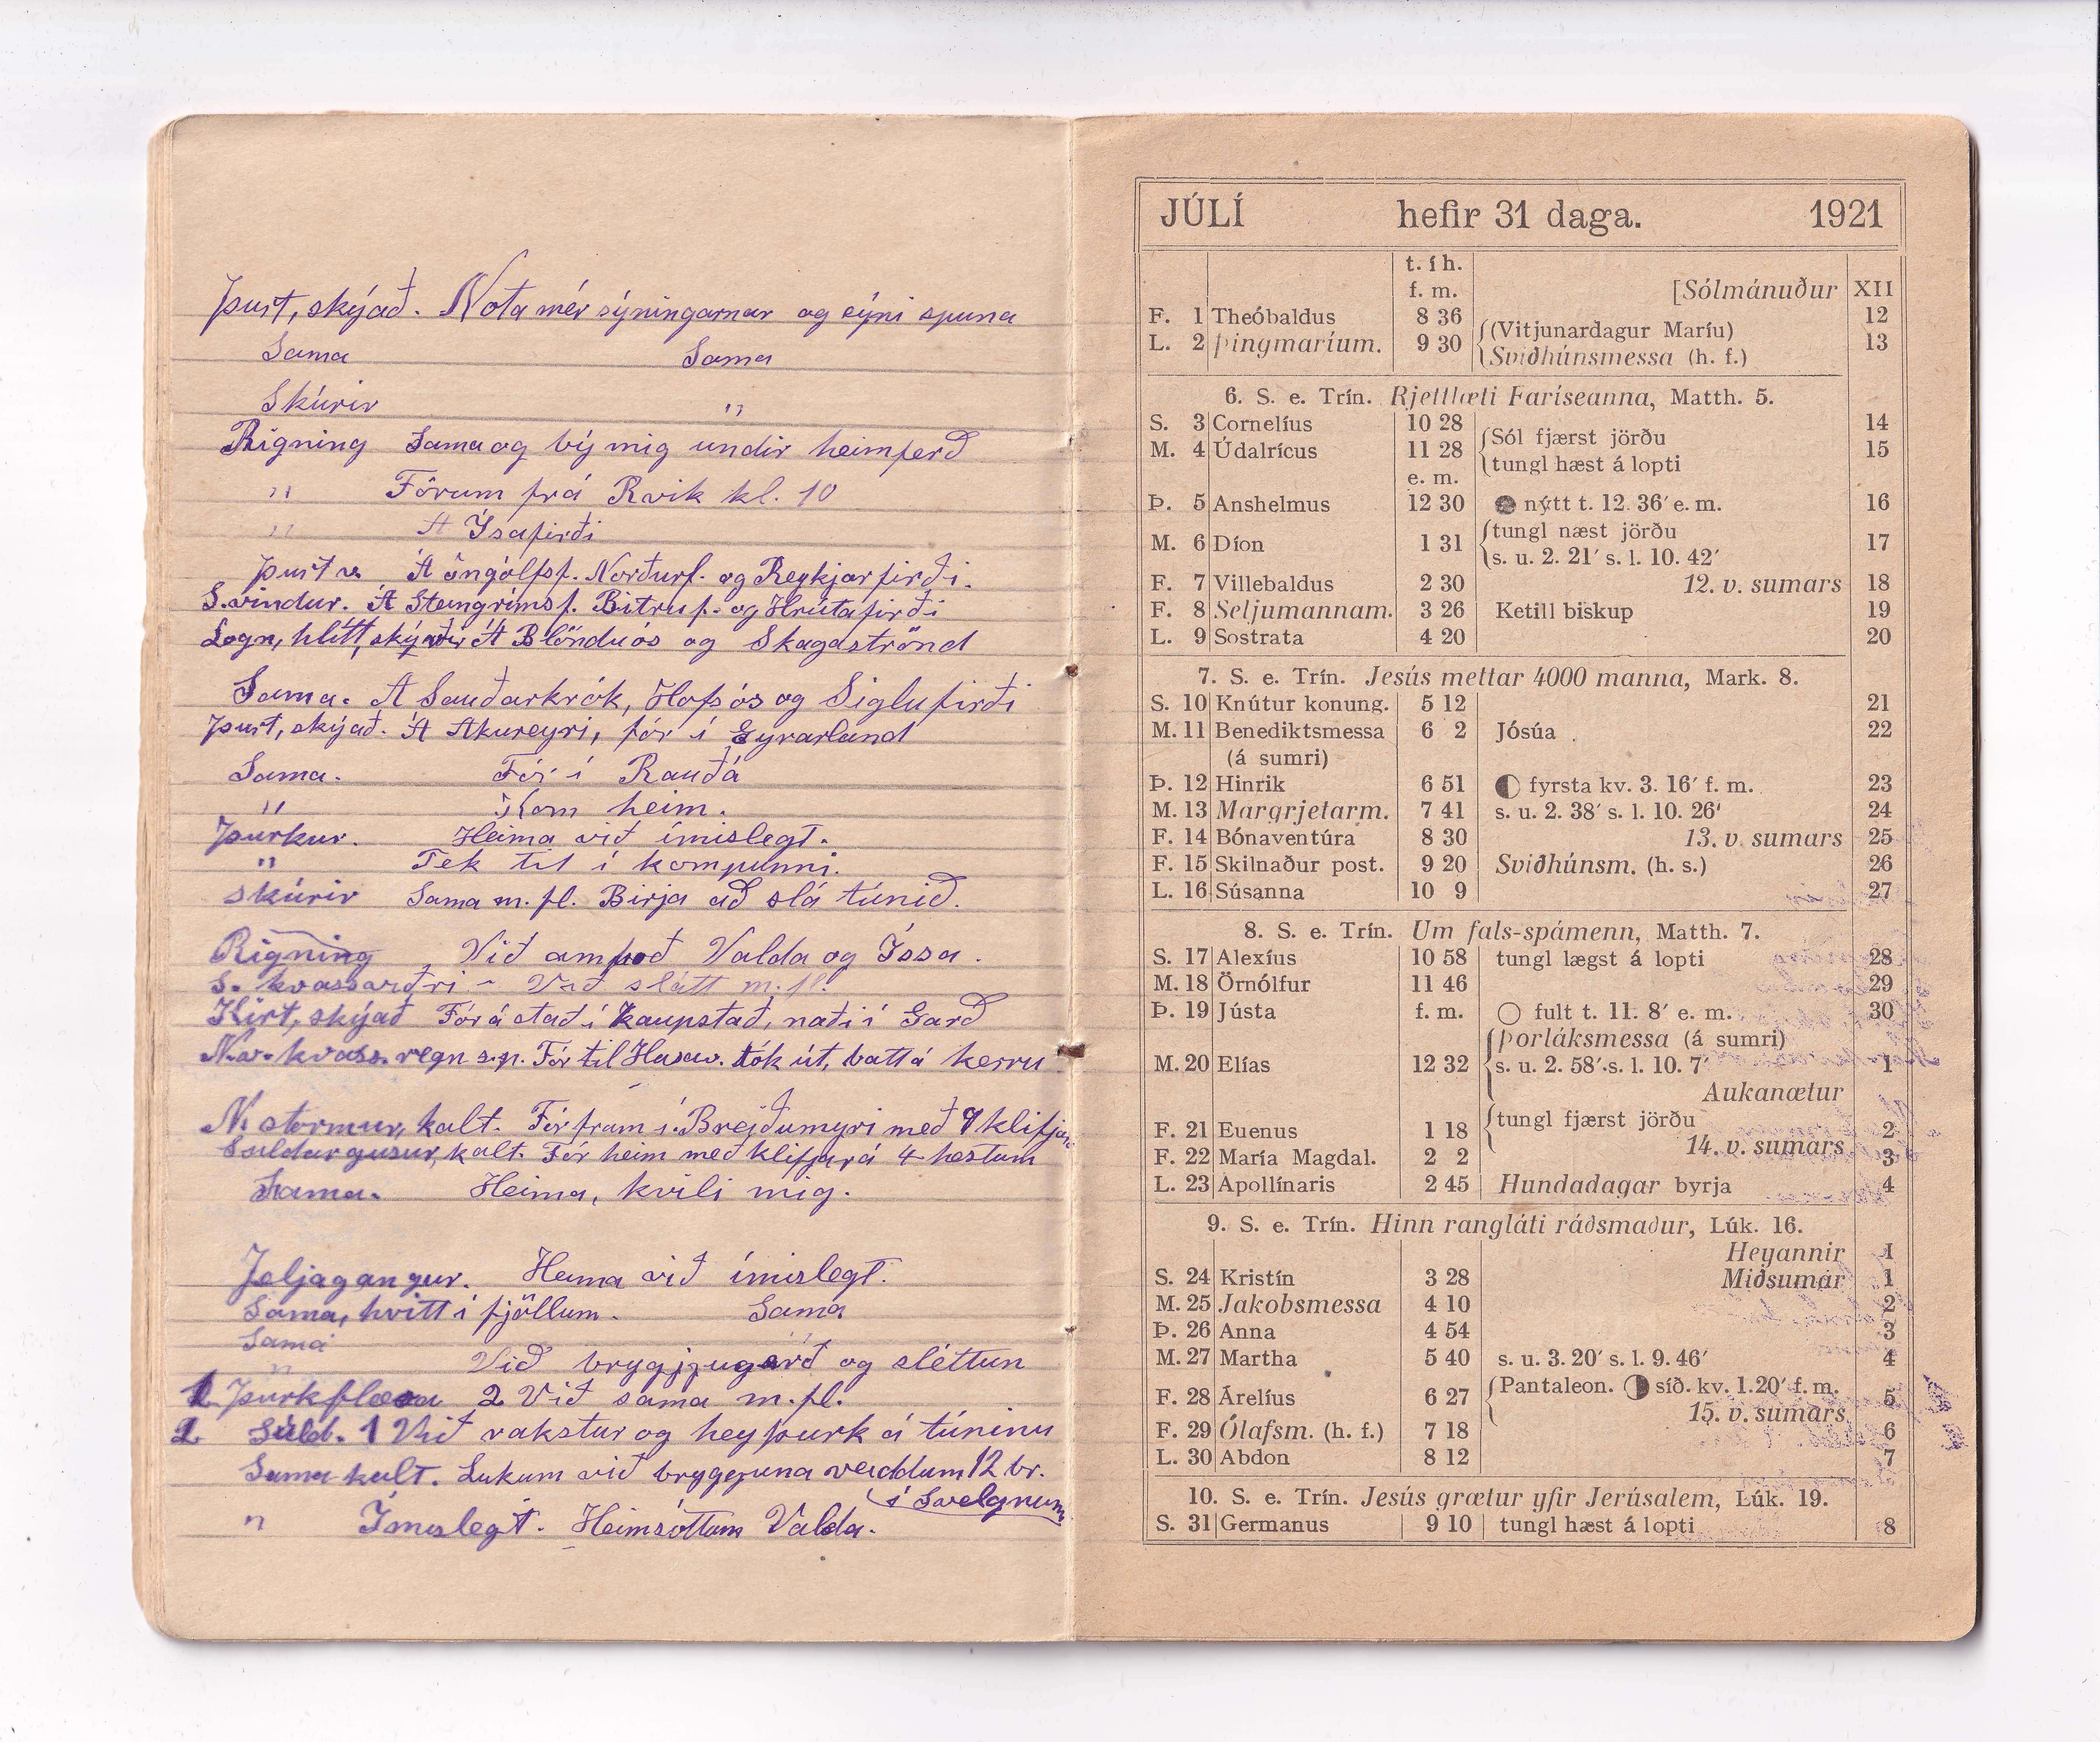 Þurt, skýað. Nota mér sýningarnar og sýni spuna
Sama Sama
Skúrir "
Rigning Sama og bý mig undir heimferð
" Fórum frá Rvik kl. 10
" Á Ísafirði
Þurt v. Á Öngólfsf. Norðurf. og Reykjarfirði.
S.vindur. Á Steingrímsf. Bitruf. og Hrútafirði
Logn, hlítt, skýað Á Blönduós og Skagaströnd
Sama. Á Sauðarkrók, Hofsós og Siglufirði
Þurt, skýað. Á Akureyri, fór í Eyrarland
Sama. Fór í Rauðá
" Kom heim.
Þurkur. Heima við ímislegt.
" Tek til í kompunni.
Skúrir Sama m. fl. Birja að slá túnið.
Rigning Við amboð Valda og Íssa.
S. kvassviðri - Við slátt m. fl.
Kirt, skýað Fór á stað í kaupstað, naði í Garð
N.v. kvass. regn s.p. Fór til Husav. tók út, batt á kerru
N. stormur, kalt. Fór fram í Breiðumyri með 7 klifjar
Suldar gusur, kalt. Fór heim með klifjar á 4 hestum
Sama. Heima, kvíli mig.
Jeljagangur. Heima við ímislegt.
Sama, hvítt í fjöllum. Sama
Sama "
" Við bryggjugarð og sléttun
1 Þurkflæsa 2 Við sama m. fl.
2 Súld. 1 Við rakstur og heyþurk á túninu
Sama kalt. Lukum við bryggjuna veiddum 12 br.
í Svelgnum
" Ímislegt. Heimsóttum Valda.
JÚLÍ hefir 31 daga. 1921
t. í h.
f. m. [Sólmánuður XII
F. 1 Theóbaldus 8 36 (Vitjunardagur Maríu) 12
L. 2 Þingmaríum. 9 30 Sviðhúnsmessa (h. f.) 13
6. S. e. Trín. Rjettlæti Faríseanna, Matth. 5.
S. 3 Cornelíus 10 28 Sól fjærst jörðu 14
M. 4 Údalrícus 11 28 tungl hæst á lopti 15
e. m.
Þ. 5 Anshelmus 12 30 nýtt t. 12. 36′ e. m. 16
tungl næst jörðu
M. 6 Díon 1 31 s. u. 2. 21′ s. l. 10. 42′ 17
F. 7 Villebaldus 2 30 12. v. sumars 18
F. 8 Seljumannam. 3 26 Ketill biskup 19
L. 9 Sostrata 4 20 20
7. S. e. Trín. Jesús mettar 4000 manna, Mark. 8.
S. 10 Knútur konung. 5 12 21
M. 11 Benediktsmessa 6 2 Jósúa 22
(á sumri)
Þ. 12 Hinrik 6 51 fyrsta kv. 3. 16′ f. m. 23
M. 13 Margrjetarm. 7 41 s. u. 2. 38′ s. l. 10. 26′ 24
F. 14 Bónaventúra 8 30 13. v. sumars 25
F. 15 Skilnaður post. 9 20 Sviðhúnsm. (h. s.) 26
L. 16 Súsanna 10 9 27
8. S. e. Trín. Um fals-spámenn, Matth. 7.
S. 17 Alexíus 10 58 tungl lægst á lopti 28
M. 18 Örnólfur 11 46 29
Þ. 19 Jústa f. m. fult t. 11. 8′ e. m. 30
Þorláksmessa (á sumri)
M. 20 Elías 12 32 s. u. 2. 58′ s. l. 10. 7′ 1
Aukanætur
tungl fjærst jörðu
F. 21 Euenus 1 18 14. v. sumars 2
F. 22 María Magdal. 2 2 3
L. 23 Apollínaris 2 45 Hundadagar byrja 4
9. S. e. Trín. Hinn rangláti ráðsmaður, Lúk. 16.
Heyannir 1
S. 24 Kristín 3 28 Miðsumar 1
M. 25 Jakobsmessa 4 10 2
Þ. 26 Anna 4 54 3
M. 27 Martha 5 40 s. u. 3. 20′ s. l. 9. 46′ 4
F. 28 Árelíus 6 27 Pantaleon. síð. kv. 1.20′ f. m. 5
15. v. sumars
F. 29 Ólafsm. (h. f.) 7 18 6
L. 30 Abdon 8 12 7
10. S. e. Trín. Jesús grætur yfir Jerúsalem, Lúk. 19.
S. 31 Germanus 9 10 tungl hæst á lopti 8